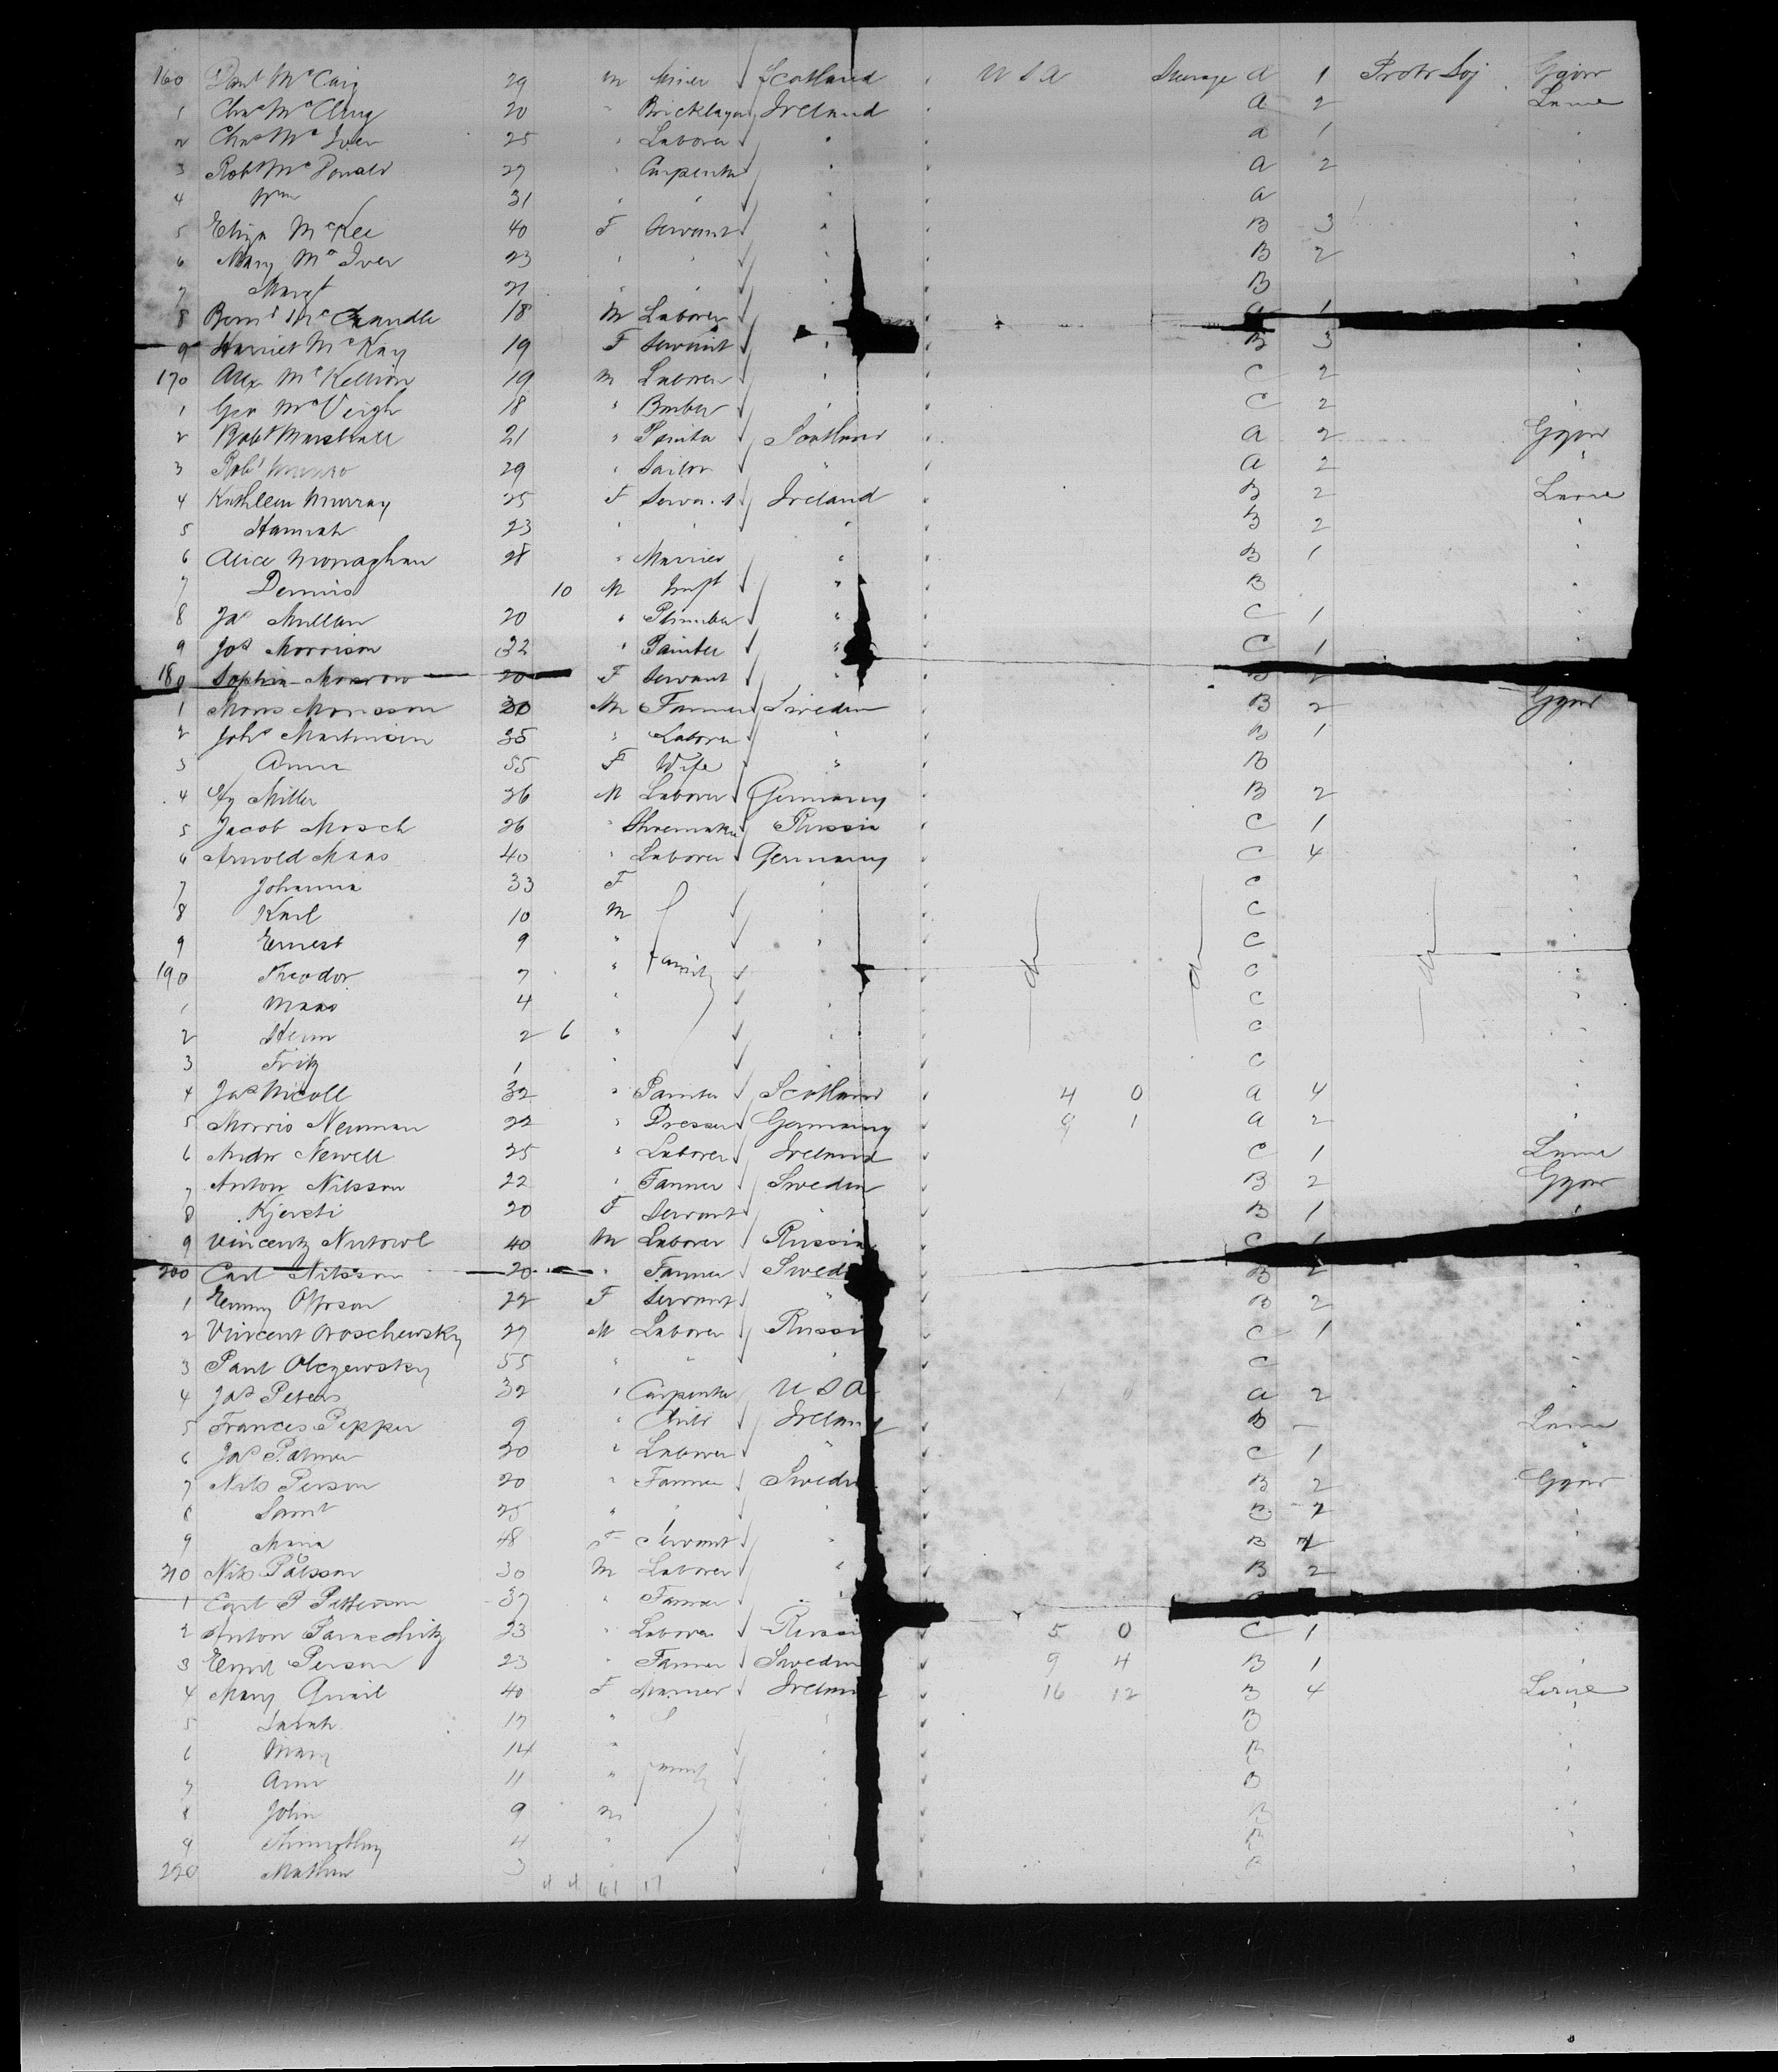 160 Danl McCaig 29 m Miner Scotland U S A Steerage A 1 Protr Soj Ggow
1 Chas McClug 20 " Bricklayer Ireland A 2 Larne
2 Chas McIver 25 " Laborer " A 1 "
3 Robt McDonald 27 " Carpenter " A 2 "
4 Wm 31 " " " A "
5 Eliza McKee 40 F Servant " B 3 "
6 Mary McIver 23 " " " B 2 "
7 Margt 21 " " " B "
8 18 M Laborer 1
9 Harriet McKay 19 F Servant " B 3 "
170 Alex 19 m Laborer " C 2 "
1 Geo McVeigh 18 " Barber " C 2 "
2 Robt Marshall 21 " Painter Scotland A 2 Ggow
3 Robt Munro 29 " Sailor " A 2 "
4 Kathleen Murray 25 F Servant Ireland B 2 Larne
5 Hannah 23 " " " B 2 "
6 Alice Monaghan 28 " Married " B 1 "
7 Dennis 10 M Inft " B "
8 Jas Mullan 20 " Plumber " C 1 "
9 Jos Morrison 32 " Painter " C 1 "
180 Sophia Morrow 20 F Servant " B 2
1 Mons Monsson 30 M Farmer Sweden B 2 Ggow
2 Johs Martinsen 35 " Laborer " B 1
3 Anna 55 F Wife " B "
4 Hy Miller 36 M Laborer Germany B 2 "
5 Jacob Mosch 26 " Shoemaker Russia C 1 "
6 Arnold Maas 40 " Laborer Germany C 4 "
7 Johanna 33 F " C "
8 Karl 10 m " C "
9 Ernest 9 " " C "
190 Theodor 7 " family " C "
1 Maas 4 " " C "
2 Herm 2 6 " " C "
3 Fritz 1 " C "
4 Jas Nicoll 32 " Painter Scotland 4 0 A 4 "
5 Morris Newman 22 " Dresser Germany 9 1 A 2 "
6 Andw Newell 25 " Laborer Ireland C 1 Larne
7 Anton Nilsson 22 " Farmer Sweden B 2 Ggow
8 Kjersti 20 F Servant " B 1 "
9 Vincenty 40 M Laborer Russia C 1
200 Carl Nilsson 20 " Farmer Swed B 2 "
1 Emmy 22 F Servant " B 2 "
2 Vincent 27 M Laborer Russi C 1 "
3 Paul Olczewsky 55 " " " C "
4 Jas Peters 32 " Carpenter U S A 1 0 A 2 "
5 Frances Pepper 9 " Child Ireland B – Larne
6 Jas Palmer 20 " Laborer " C 1 "
7 Nils Person 20 " Farmer Swede B 2 Ggow
8 Saml 25 " " " 2 "
9 Maria 48 F Servant " B "
210 Nils Pålsson 30 M Laborer " B 2 "
1 Carl P Petterson 37 " Farmer "
2 Anton 23 " Laborer Russi 5 0 C 1
3 Emil Person 23 " Farmer Sweden 9 4 B 1 "
4 Mary Quail 40 F Married Irelan 16 12 B 4 Larne
5 Sarah 17 " " B "
6 Mary 14 " " B "
7 Ann 11 " family " B "
8 John 9 m B "
9 Timothy 4 " " B "
220 Mathew 3 " B "
4 4 61 17